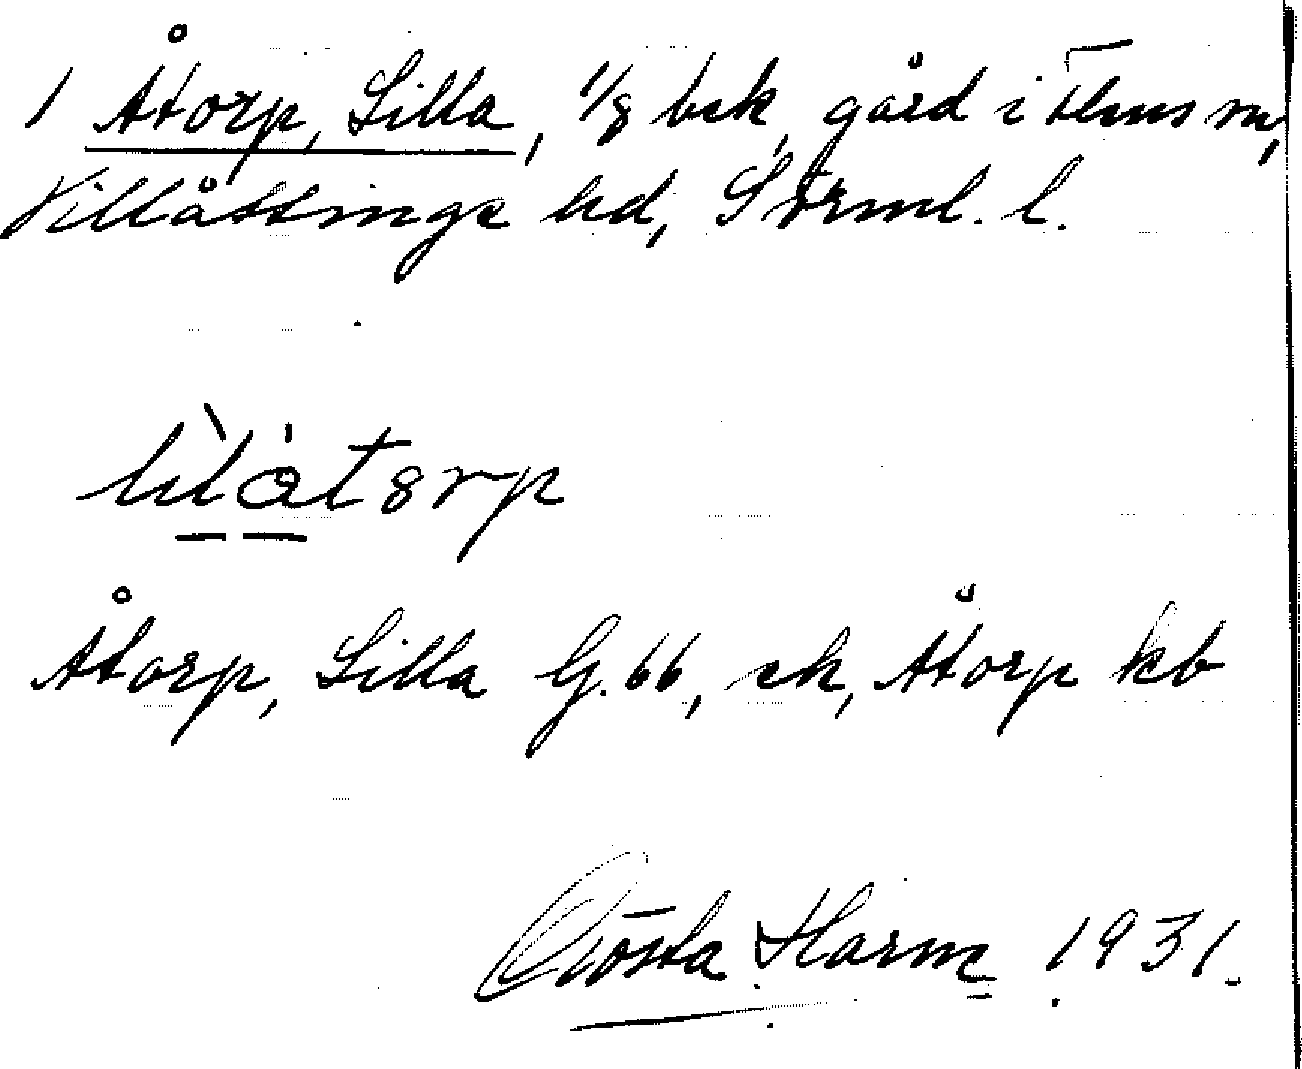 1 Åtorp, Lilla, 1/8 bsk, gård i Flens sn,
Villåttinge hd, Sörml. l.
lìlåtorp
Åtorp, Lilla G. 66, sk, Åtorp kb
Gösta Harm 1931.